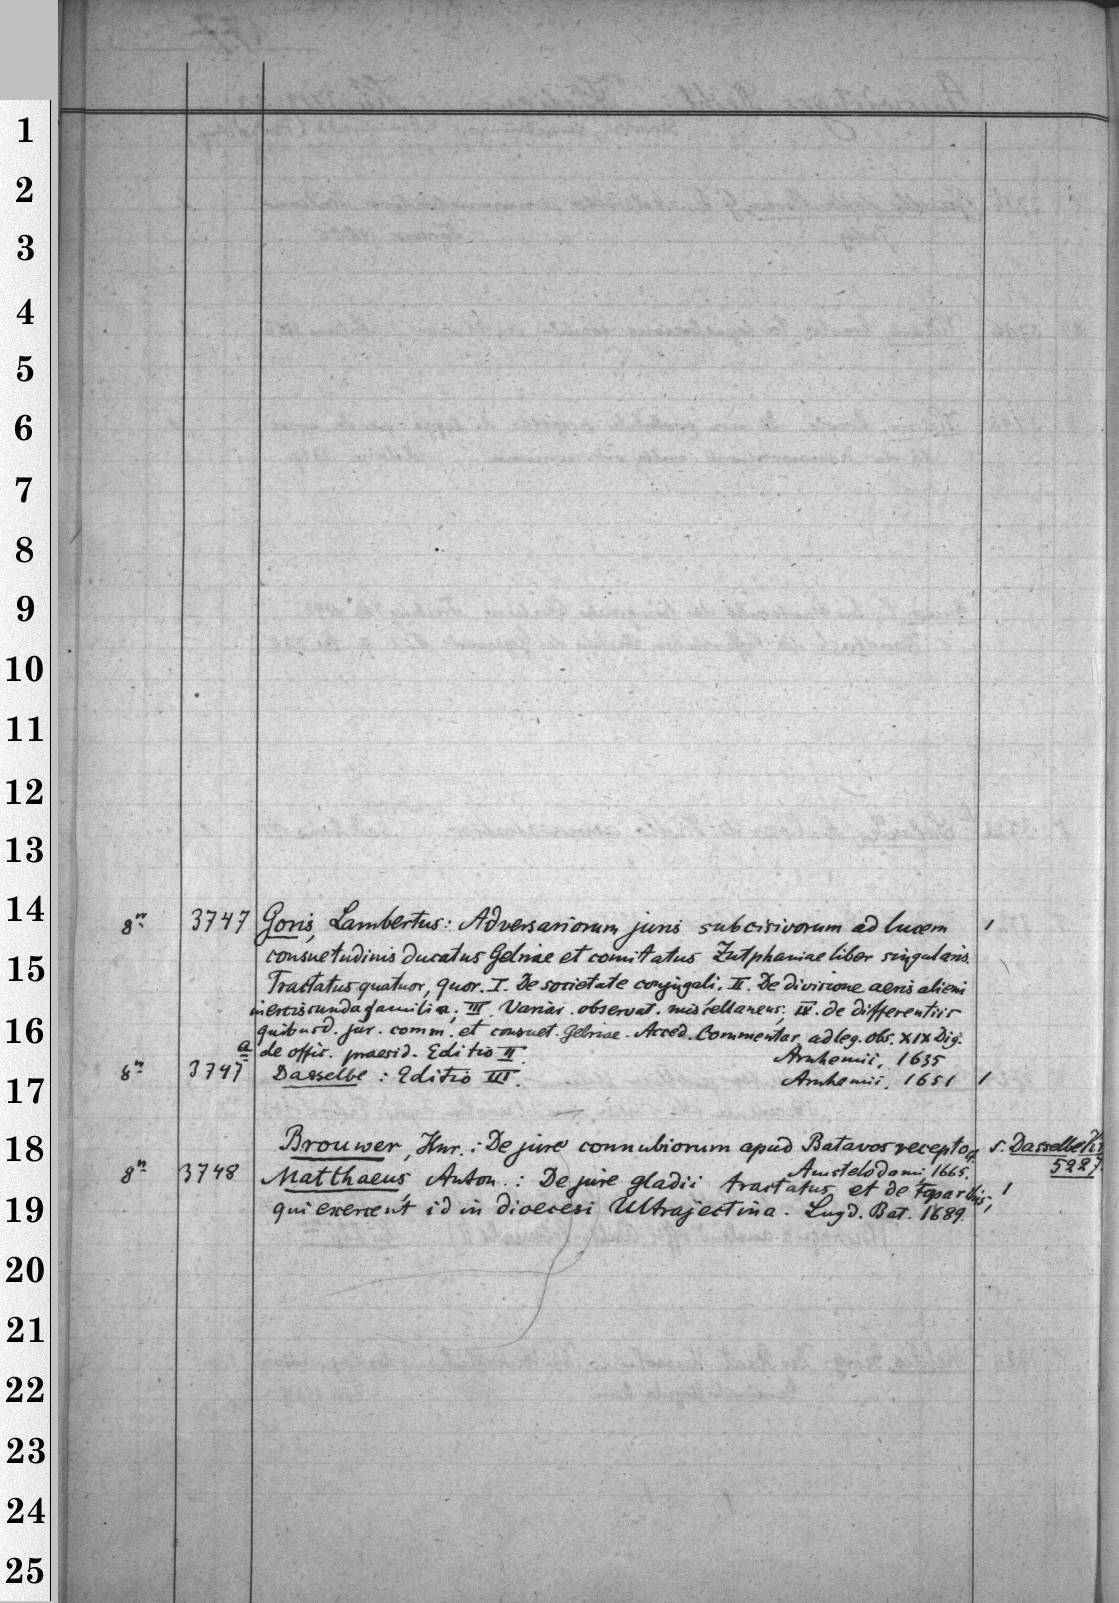 1
2
3
4
5
6
7
8
9
10
11
12
13
14
8n. 3747 Goris, Lambertus: Adversariorum juris subcisivorum ad lucem 1
consuetudinis ducatus Gelriae et comitatus Zutphaniae liber singularis.
15
Tractatus quatuor, quor. I. De societate conjugali. II. De divisione aeris alieni
in erciscunda familia; III. Variar. observat. miscellaneus; IV. de differentiis
16
quibusd. jur. comm. et consuet. Gelriae. Acced. Commentar. ad leg. obs. XIX Dig.
de offic. praesid. Editio II. Arnhemii, 1635
8n. 3747a Dasselbe: Editio III. Arnhemii, 1651 1
17
Brouwer, Hnr.: De jure connubiorum apud Batavos recepto, s. Dasselbe
18
Amstelodami, 1665. 5227
8n. 3748 Matthaeus Anton.: De jure gladii tractatus et de toparchis, 1
19
qui exercent id in dioecesi Ultrajectina. Lugd. Bat. 1689.
20
21
22
23
24
25